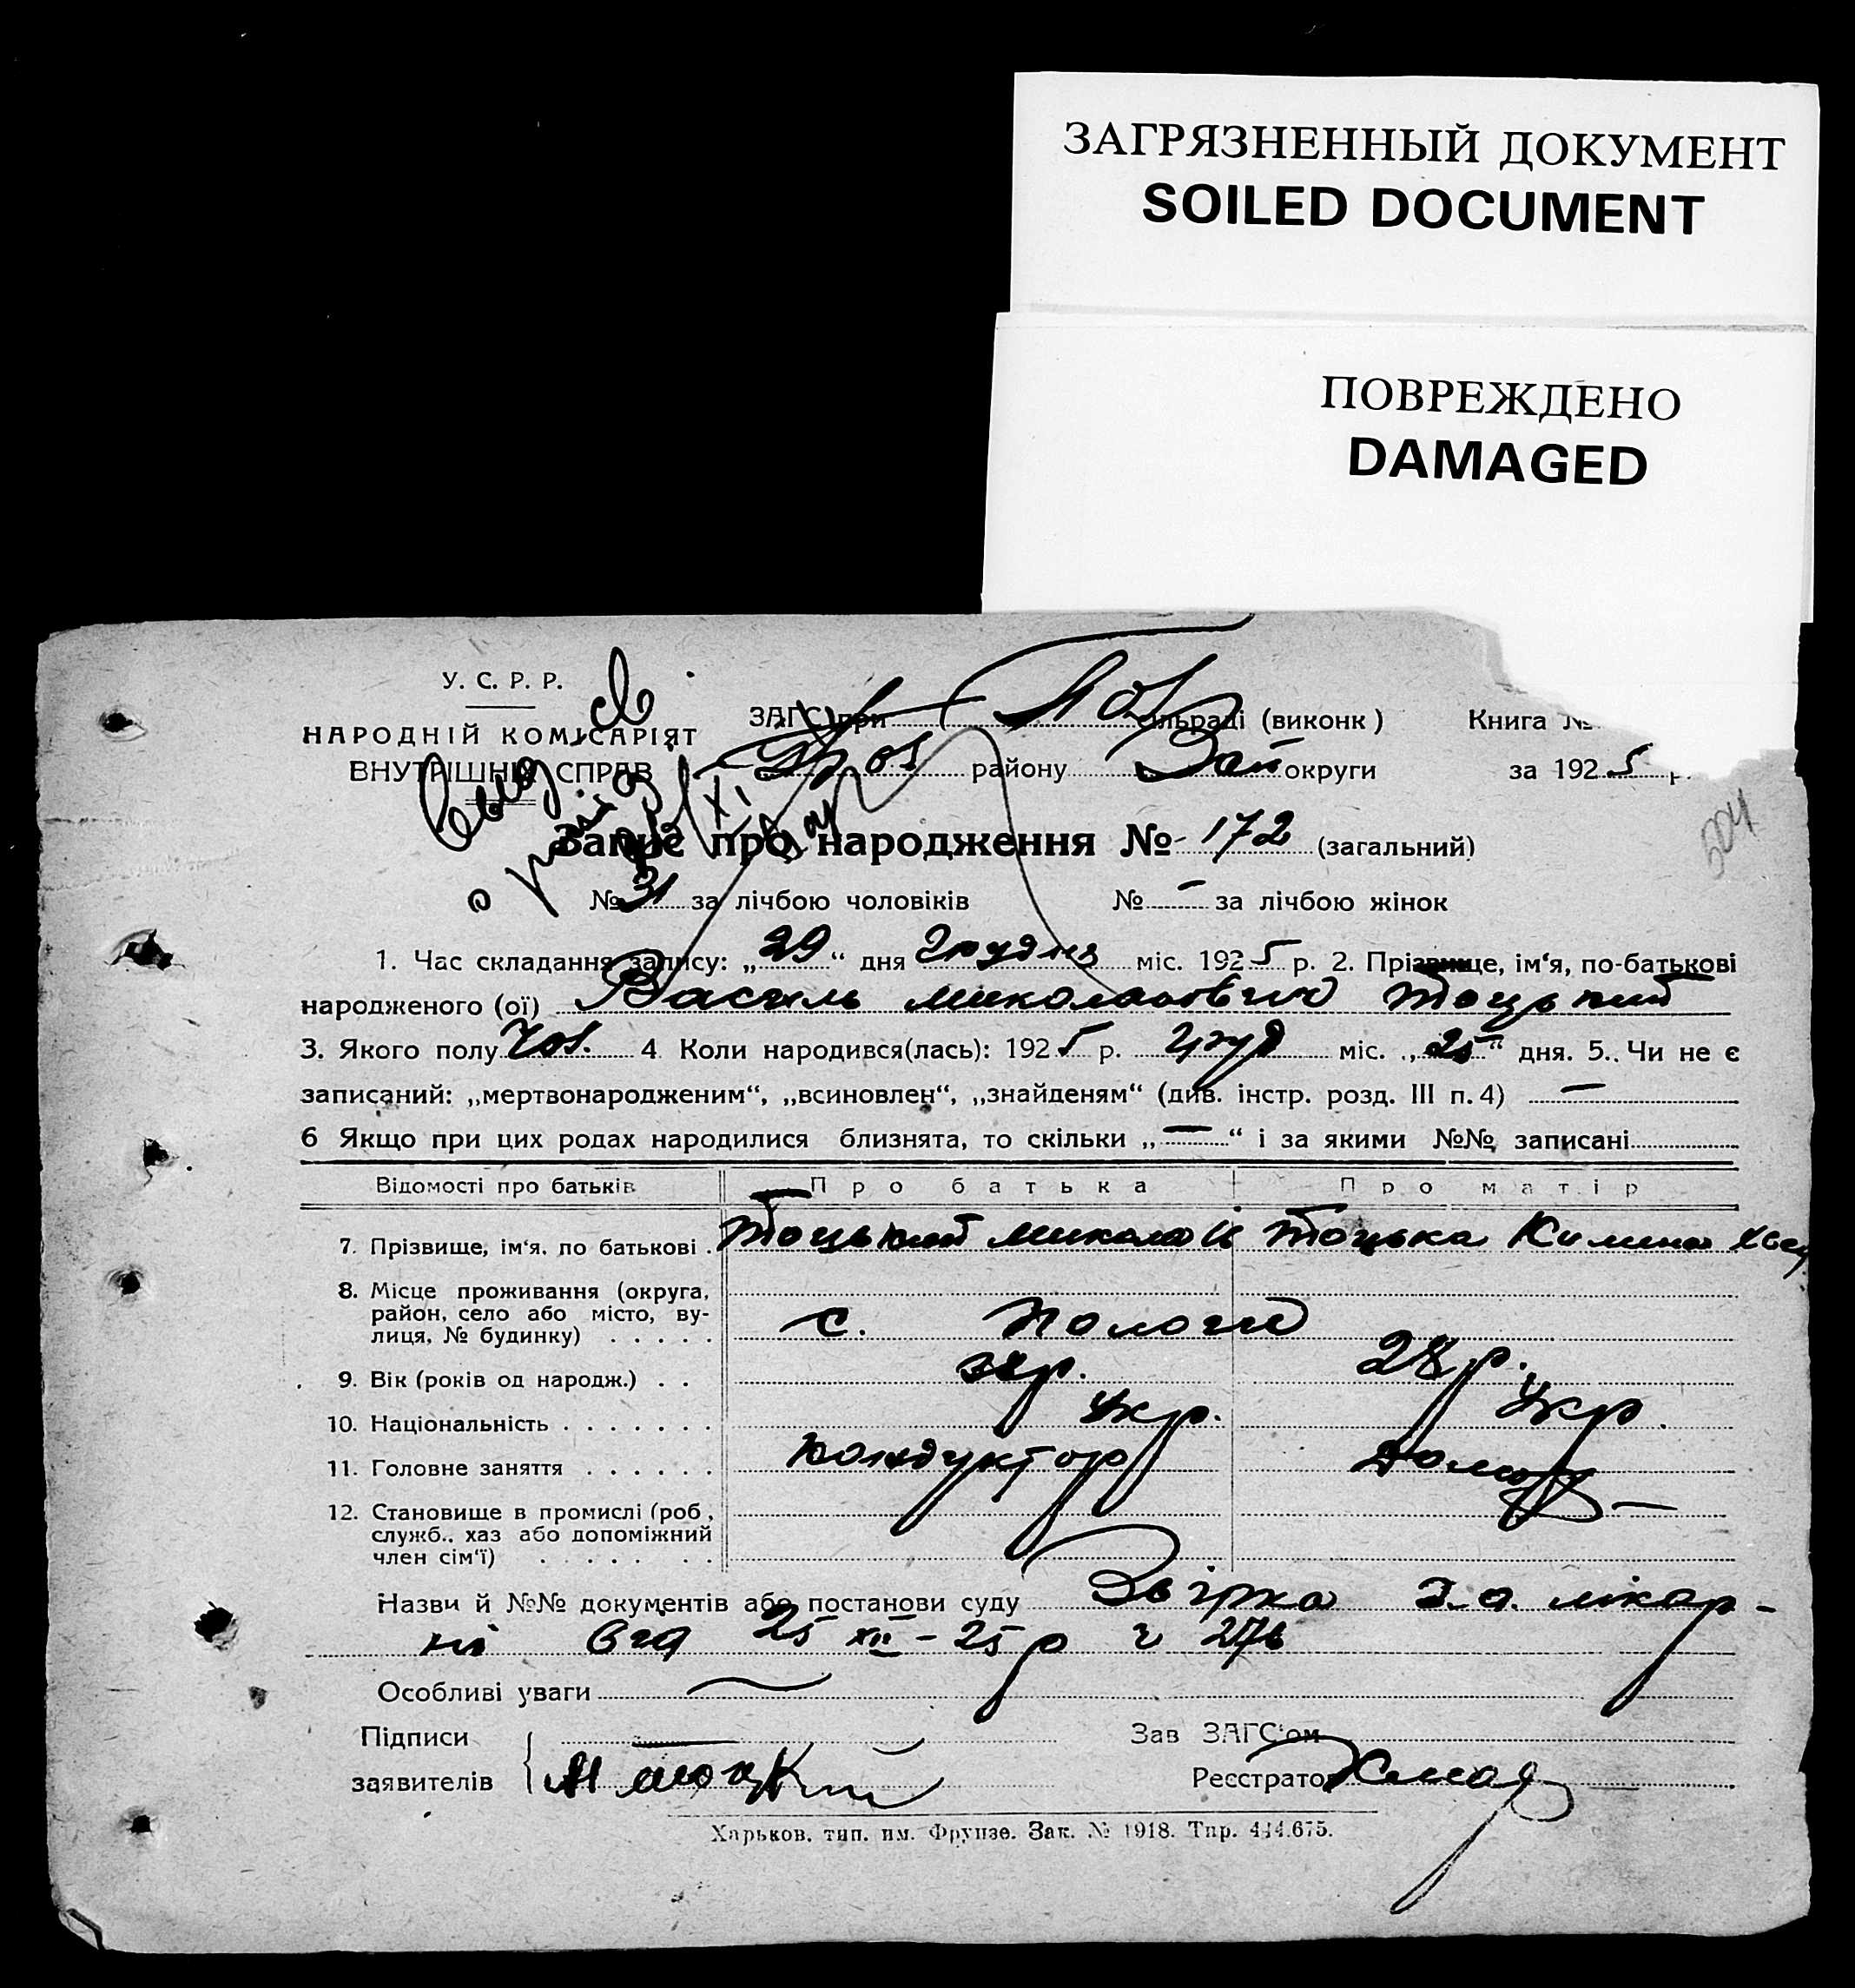 ЗАГРЯЗНЕННЫЙ ДОКУМЕНТ
SOILED DOCUMENT
ПОВРЕЖДЕНО
DAMAGED
У. С. Р. Р.
НАРОДНІЙ КОМІСАРІЯТ
ВНУТРІШНІХ СПРАВ
ЗАГС при Пол сільраді (виконк) Книга №
району Зап округи за 1925 р.
Запис про народження № 172 (загальний)
№ 31 за лічбою чоловіків № – за лічбою жінок
504
1. Час складання запису: „29“ дня Грудня міс. 1925 р. 2. Прізвище, ім‘я, по-батькові
народженого (ої) Василь Миколаович Тоцький
3. Якого полу Чол. 4 Коли народився(лась): 1925 р. груд міс. „25“ дня. 5. Чи не є
записаний: „мертвонародженим“, „всиновлен“, „знайденям“ (див. інстр. розд. III п. 4) —
6 Якщо при цих родах народилися близнята, то скільки „—“ і за якими №№ записані
Відомості про батьків Про батька Про матір
7. Прізвище, ім‘я, по батькові . Тоцький Миколай Тоцька
8. Місце проживання (округа,
район, село або місто, ву-
лиця, № будинку) . . . . . с. Пологи
9. Вік (років од народж.) . . р. 28 р.
10. Національність . . . . . . . Укр. Укр.
11. Головне заняття . . . . . . Кондуктор Домогр
12. Становище в промислі (роб,
служб., хаз або допоміжний
член сім‘ї) . . . . . . .
Назви й №№ документів або постанови суду Звірка лікар-
ні від 25 XII – 25 р
Особливі уваги
Підписи
заявителів
М Тоцкий
Зав ЗАГС‘ом
Реєстратор
Харьков. тип. им. Фрунзе. Зак. № 1918. Тир. 444.675.